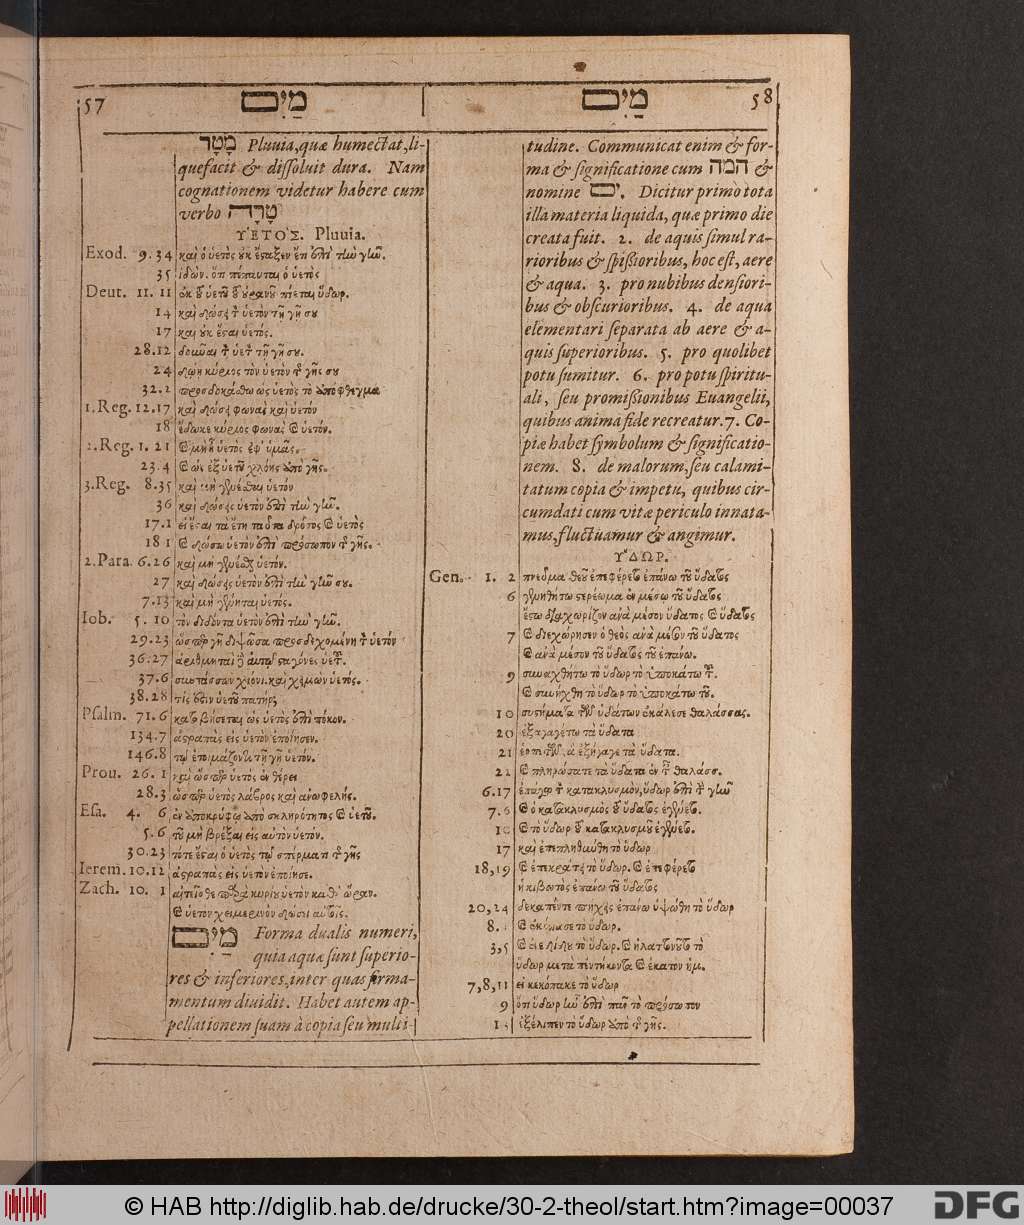 57 מַיִם
מָטָר Pluuia, quæ humectat, li-
quefacit & dissoluit dura. Nam
cognationem videtur habere cum
verbo טָרָה
ΥΕΤΟΣ. Pluuia.
Exod. 9. 34 καὶ ὁ ὑετὸς οὐκ ἔσταξεν ἔτι ἐπὶ τὴν γῆν.
35 ἰδὼν. ὅτι πέπαυται ὁ ὑετὸς
Deut. 11. 11 ἐκ τοῦ ὑετοῦ τοῦ οὐρανοῦ πίεται ὕδωρ.
14 καὶ δώσει τὸν ὑετὸν τῇ γῇ σου
17 καὶ οὐκ ἔσται ὑετός.
28. 12 δοῦναι τὸν ὑετὸν τῇ γῇ σου.
24 δῴη κύριος τὸν ὑετὸν τῆς γῆς σου
32. 2 προσδοκάσθω ὡς ὑετὸς τὸ ἀπόφθεγμα
1. Reg. 12. 17 καὶ δώσει φωνὰς καὶ ὑετόν
18 ἔδωκε κύριος φωνὰς καὶ ὑετόν.
2. Reg. 1. 21 καὶ μὴ ὑετὸς ἐφ' ὑμᾶς.
23. 4 καὶ ὡς ἐξ ὑετοῦ χλόης ἀπὸ γῆς.
3. Reg. 8. 35 καὶ μὴ γενέσθαι ὑετόν
36 καὶ δώσεις ὑετὸν ἐπὶ τὴν γῆν.
17. 1 εἰ ἔσται τὰ ἔτη ταῦτα δρόσος καὶ ὑετὸς
18 1 καὶ δώσω ὑετὸν ἐπὶ πρόσωπον τῆς γῆς.
2. Para. 6. 26 καὶ μὴ γενέσθαι ὑετόν.
27 καὶ δώσεις ὑετὸν ἐπὶ τὴν γῆν σου.
7. 13 καὶ μὴ γένηται ὑετός.
Iob. 5. 10 τὸν διδόντα ὑετὸν ἐπὶ τὴν γῆν.
29. 23 ὥσπερ γῆ διψῶσα προσδεχομένη τὸν ὑετόν
36. 27 ἀριθμηταὶ δὲ αὐτῷ σταγόνες ὑετοῦ.
37. 6 συντάσσων χιόνι. καὶ χειμὼν ὑετός.
38. 28 τίς ἐστιν ὑετοῦ πατήρ;
Psalm. 71. 6 καταβήσεται ὡς ὑετὸς ἐπὶ πόκον.
134. 7 ἀστραπὰς εἰς ὑετὸν ἐποίησεν.
146. 8 τῷ ἑτοιμάζοντι τῇ γῇ ὑετόν.
Prou. 26. 1 καὶ ὥσπερ ὑετὸς ἐν θέρει
28. 3 ὥσπερ ὑετὸς λάβρος καὶ ἀνωφελής.
Esa. 4. 6 ἐν ἀποκρύφῳ ἀπὸ σκληρότητος καὶ ὑετοῦ.
5. 6 τοῦ μὴ βρέξαι εἰς αὐτὸν ὑετόν.
30. 23 τότε ἔσται ὁ ὑετὸς τῷ σπέρματι τῆς γῆς
Ierem. 10. 12 ἀστραπὰς εἰς ὑετὸν ἐποίησε.
Zach. 10. 1 αἰτεῖσθε παρὰ κυρίου ὑετὸν καθ' ὥραν.
καὶ ὑετὸν χειμερινὸν δώσει αὐτοῖς.
מַיִם Forma dualis numeri,
quia aquæ sunt superio-
res & inferiores, inter quas firma-
mentum diuidit. Habet autem ap-
pellationem suam à copia seu multi-
מַיִם 58
tudine. Communicat enim & for-
ma & significatione cum המה &
nomine ים. Dicitur primò tota
illa materia liquida, quæ primo die
creata fuit. 2. de aquis simul ra-
rioribus & spissioribus, hoc est, aere
& aqua. 3. pro nubibus densiori-
bus & obscurioribus. 4. de aqua
elementari separata ab aere & a-
quis superioribus. 5. pro quolibet
potu sumitur. 6. pro potu spiritu-
ali, seu promissionibus Euangelii,
quibus anima fide recreatur. 7. Co-
piæ habet symbolum & significatio-
nem. 8. de malorum, seu calami-
tatum copia & impetu, quibus cir-
cumdati cum vitæ periculo innata-
mus, fluctuamur & angimur.
ΥΔΩΡ.
Gen. 1. 2 πνεῦμα θεοῦ ἐπεφέρετο ἐπάνω τοῦ ὕδατος
6 γενηθήτω στερέωμα ἐν μέσῳ τοῦ ὕδατος
ἔστω διαχωρίζον ἀνὰ μέσον ὕδατος καὶ ὕδατος
7 καὶ διεχώρισεν ὁ θεὸς ἀνὰ μέσον τοῦ ὕδατος
καὶ ἀνὰ μέσον τοῦ ὕδατος τοῦ ἐπάνω.
9 συναχθήτω τὸ ὕδωρ τὸ ὑποκάτω τοῦ.
καὶ συνήχθη τὸ ὕδωρ τὸ ὑποκάτω τοῦ.
10 συστήματα τῶν ὑδάτων ἐκάλεσε θαλάσσας.
20 ἐξαγαγέτω τὰ ὕδατα
21 ἑρπετῶν, ἃ ἐξήγαγε τὰ ὕδατα.
22 καὶ πληρώσατε τὰ ὕδατα ἐν ταῖς θαλάσσ.
6. 17 ἐπάγω τὸν κατακλυσμὸν, ὕδωρ ἐπὶ τὴν γῆν
7. 6 καὶ ὁ κατακλυσμὸς τοῦ ὕδατος ἐγένετο.
10 καὶ τὸ ὕδωρ τοῦ κατακλυσμοῦ ἐγένετο.
17 καὶ ἐπεπληθύνθη τὸ ὕδωρ
18, 19 καὶ ἐπεκράτει τὸ ὕδωρ. καὶ ἐπεφέρετο
ἡ κιβωτὸς ἐπάνω τοῦ ὕδατος
20, 24 δεκαπέντε πήχεις ἐπάνω ὑψώθη τὸ ὕδωρ
8. 1 καὶ ἐκόπασε τὸ ὕδωρ.
3, 5 καὶ ἐνεδίδου τὸ ὕδωρ. καὶ ἠλαττονοῦτο τὸ
ὕδωρ μετὰ πεντήκοντα καὶ ἑκατὸν ἡμ.
7, 8, 11 εἰ κεκόπακε τὸ ὕδωρ
9 ὅτι ὕδωρ ἦν ἐπὶ πᾶν τὸ πρόσωπον
13 ἐξέλιπεν τὸ ὕδωρ ἀπὸ τῆς γῆς.
© HAB http://diglib.hab.de/drucke/30-2-theol/start.htm?image=00037
DFG